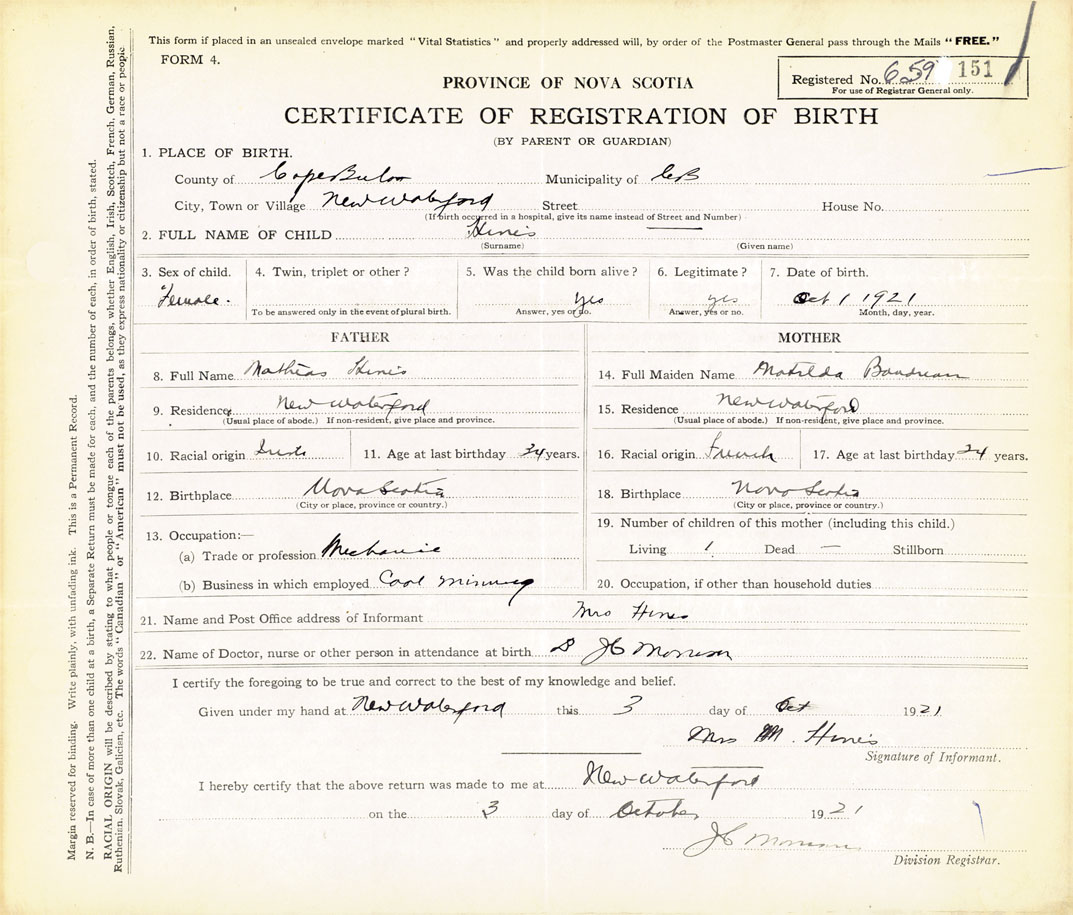 This form if placed in an unsealed envelope marked "Vital Statistics" and properly addressed will, by order of the Postmaster General pass through the Mails "FREE."
FORM 4.
Registered No. 659 151
For use of Registrar General only.
PROVINCE OF NOVA SCOTIA
CERTIFICATE OF REGISTRATION OF BIRTH
(BY PARENT OR GUARDIAN)
1. PLACE OF BIRTH.
County of Cape Breton Municipality of CB
City, Town or Village New Waterford Street House No.
(If birth occurred in a hospital, give its name instead of Street and Number)
2. FULL NAME OF CHILD Hines
(Surname) (Given name)
3. Sex of child. 4. Twin, triplet or other? 5. Was the child born alive? 6. Legitimate? 7. Date of birth.
Female. yes yes Oct 1 1921
To be answered only in the event of plural birth. Answer, yes or no. Answer, yes or no. Month, day, year.
FATHER MOTHER
8. Full Name Mathias Hines 14. Full Maiden Name Matilda Boudreau
9. Residence New Waterford 15. Residence New Waterford
(Usual place of abode.) If non-resident, give place and province. (Usual place of abode.) If non-resident, give place and province.
10. Racial origin Irish 11. Age at last birthday 24 years. 16. Racial origin French 17. Age at last birthday 24 years.
12. Birthplace Nova Scotia 18. Birthplace Nova Scotia
(City or place, province or country.) (City or place, province or country.)
13. Occupation:— 19. Number of children of this mother (including this child.)
(a) Trade or profession Mechanic Living 1 Dead — Stillborn
(b) Business in which employed Coal minning 20. Occupation, if other than household duties
21. Name and Post Office address of Informant Mrs Hines
22. Name of Doctor, nurse or other person in attendance at birth D JC Morrison
I certify the foregoing to be true and correct to the best of my knowledge and belief.
Given under my hand at New Waterford this 3 day of Oct 1921
Mrs M. Hines
Signature of Informant.
I hereby certify that the above return was made to me at New Waterford
on the 3 day of October 1921
JC Morrison
Division Registrar.
Margin reserved for binding. Write plainly, with unfading ink. This is a Permanent Record.
N. B.—In case of more than one child at a birth, a Separate Return must be made for each, and the number of each, in order of birth, stated.
RACIAL ORIGIN will be described by stating to what people or tongue each of the parents belongs, whether English, Irish, Scotch, French, German, Russian,
Ruthenian, Slovak, Galician, etc. The words "Canadian" or "American" must not be used, as they express nationality or citizenship but not a race or people